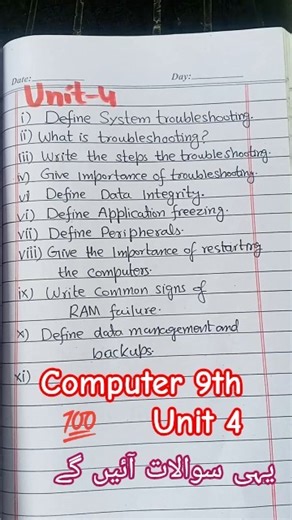 Date: Day:
Unit-4
i) Define System troubleshooting.
ii) What is troubleshooting?
iii) Write the steps the troubleshooting.
iv) Give Importance of troubleshooting.
v) Define Data Integrity.
vi) Define Application freezing.
vii) Define Peripherals.
viii) Give the Importance of restarting
the computers.
ix) Write Common signs of
RAM failure.
x) Define data management and
backups.
xi)
Computer 9th
💯 Unit 4
یہی سوالات آئیں گے